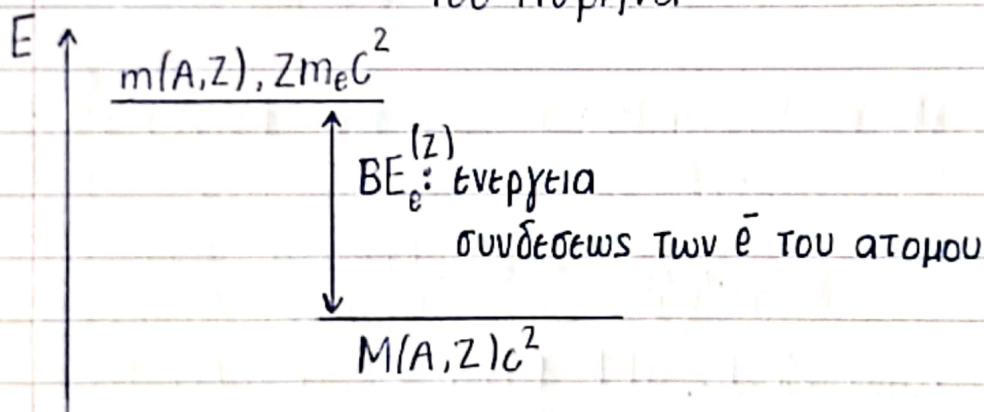 του πυρήνα
E
m(A,Z), Zmₑc²
BEₑ⁽ᶻ⁾: ενεργεια
συνδεσεως των e⁻ του ατομου
M(A,Z)c²